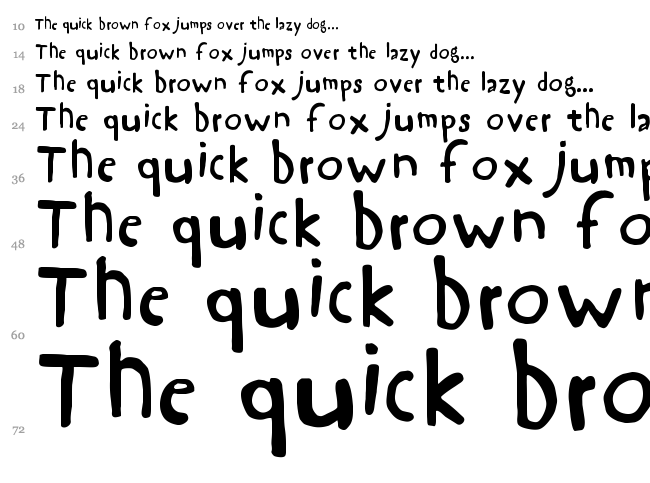 10 The quick brown fox jumps over the lazy dog...
14 The quick brown fox jumps over the lazy dog...
18 The quick brown fox jumps over the lazy dog...
24 The quick brown fox jumps over the la
36 The quick brown fox jump
48 The quick brown fo
60 The quick brown
72 The quick bro